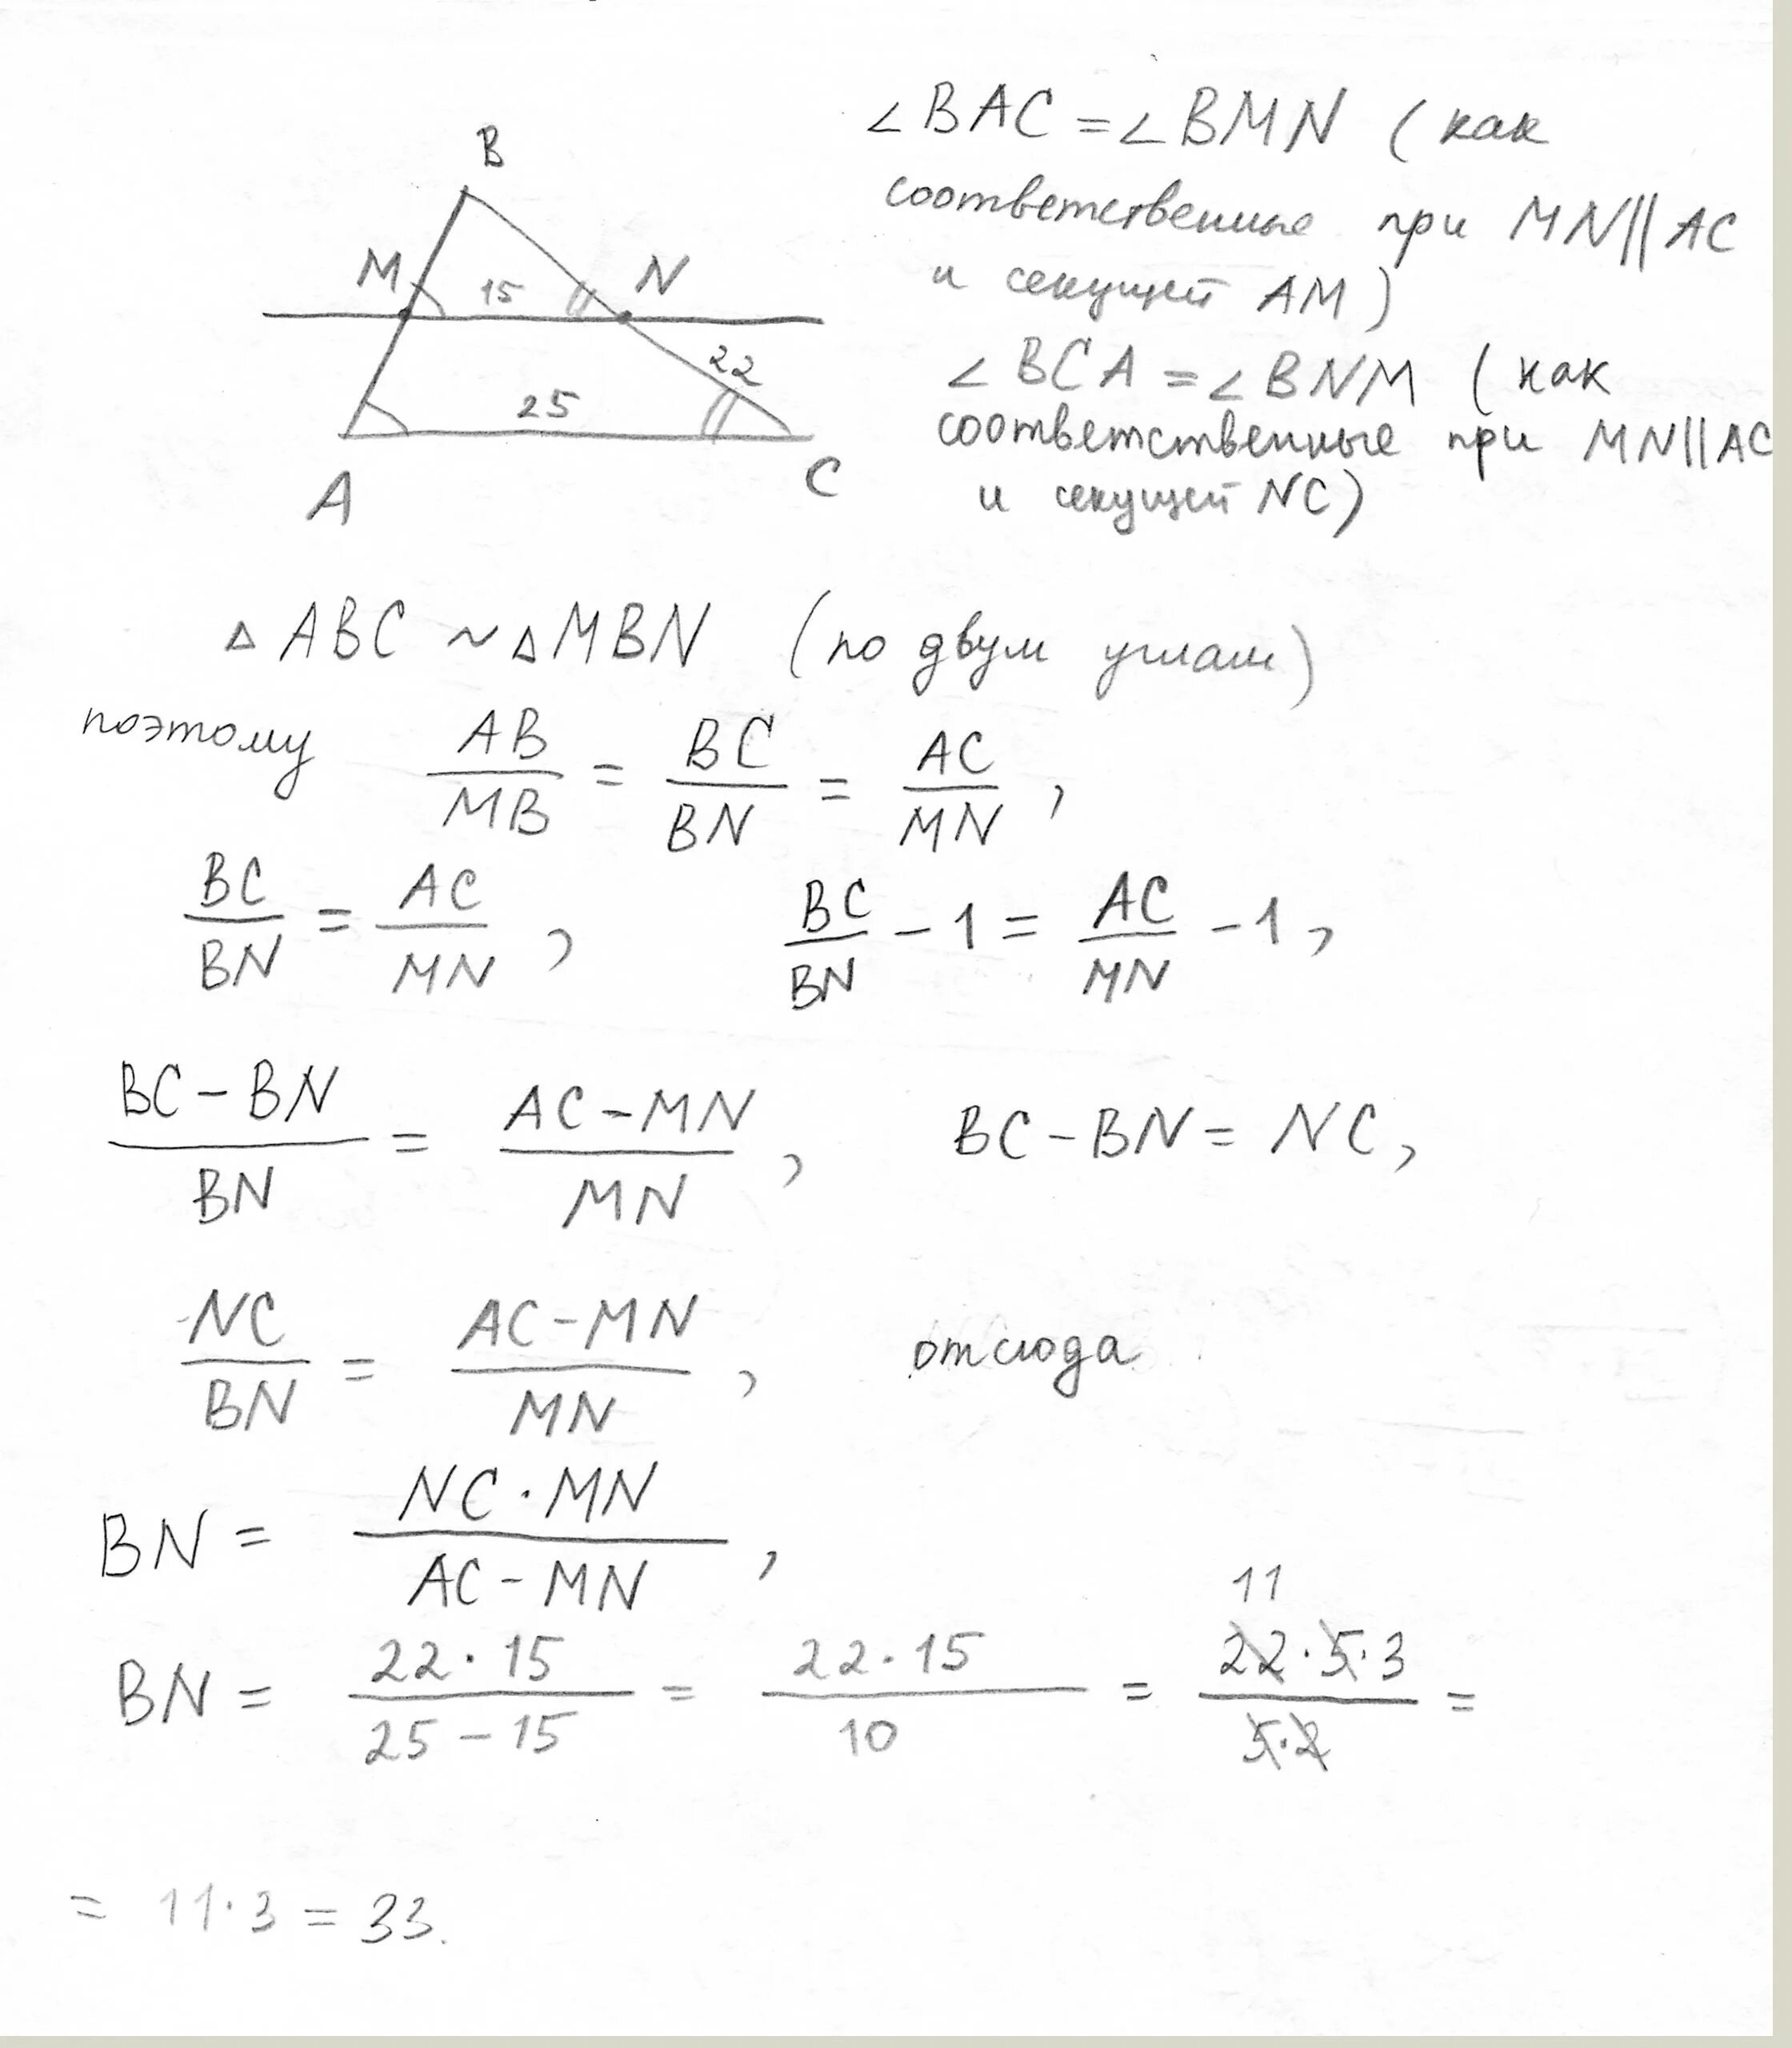 B
∠BAC = ∠BMN (как
соответственные при MN || AC
и секущей AM)
M 15 N
22
∠BCA = ∠BNM (как
соответственные при MN || AC
и секущей NC)
25
A C
△ABC ~ △MBN (по двум углам)
поэтому AB/MB = BC/BN = AC/MN,
BC/BN = AC/MN, BC/BN - 1 = AC/MN - 1,
BC - BN/BN = AC - MN/MN, BC - BN = NC,
NC/BN = AC - MN/MN, отсюда
BN = NC · MN/AC - MN,
11
BN = 22 · 15/25 - 15 = 22 · 15/10 = 22 · 5 · 3/5 · 2 =
= 11 · 3 = 33.